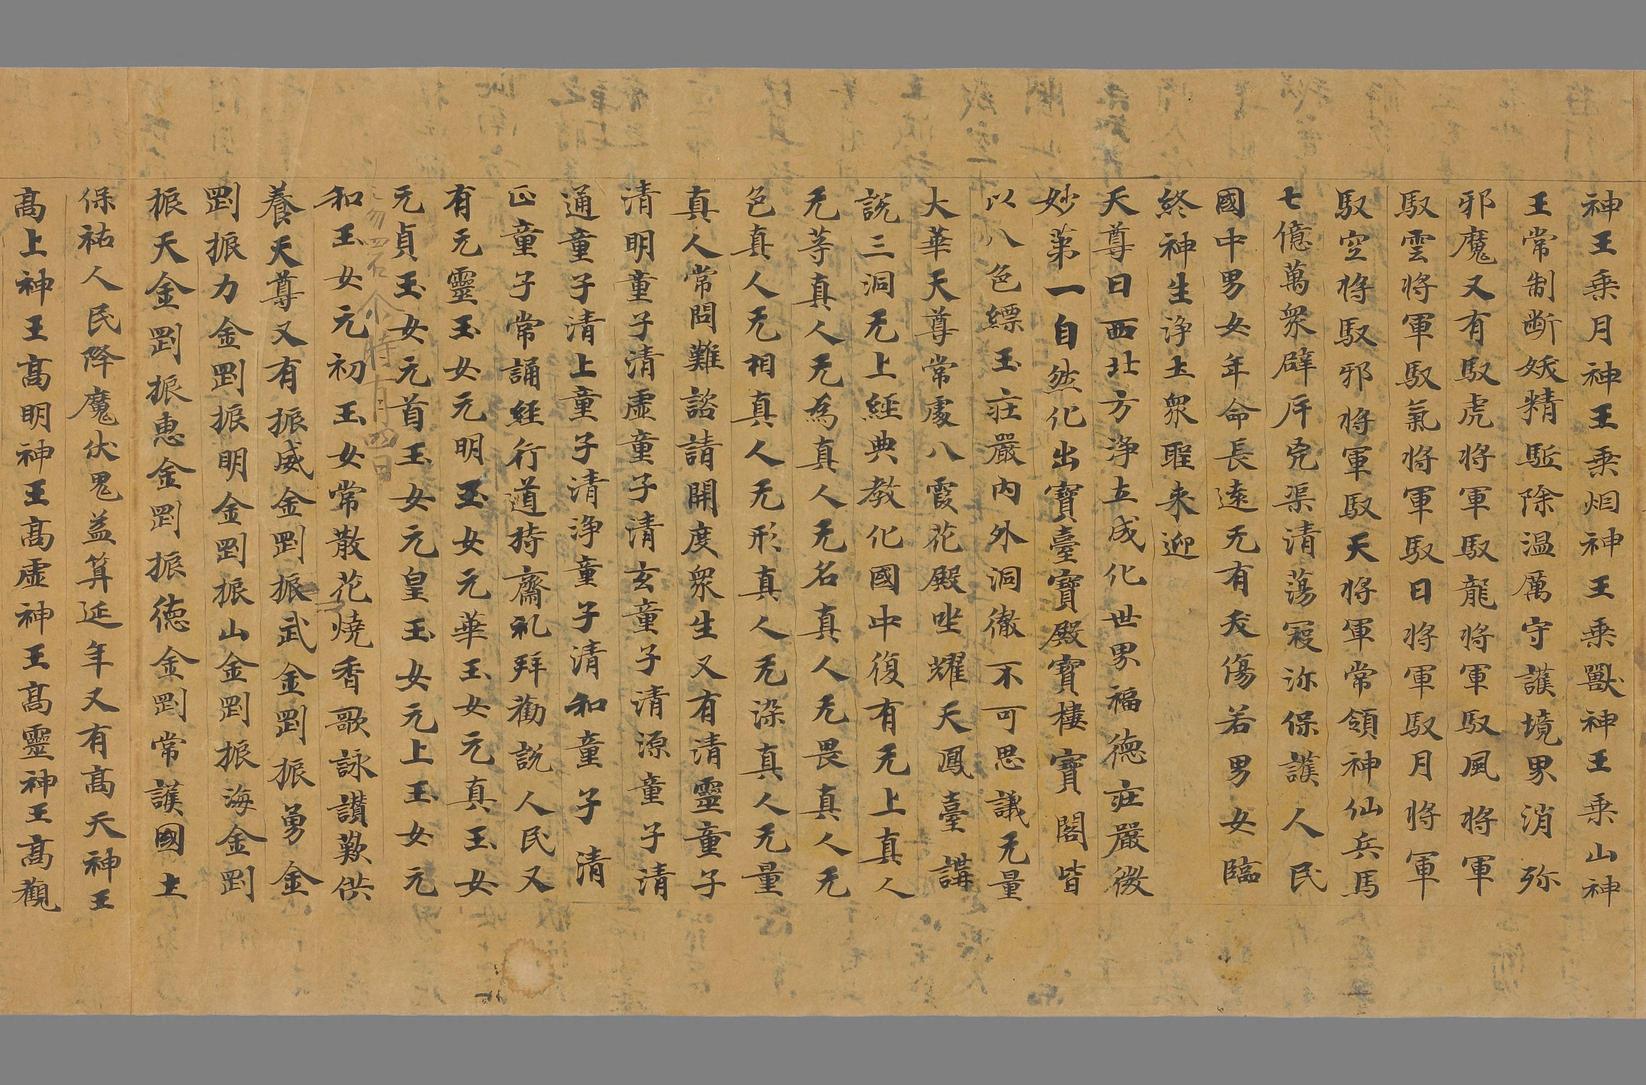 神王乗月神王乗烟神王乗獸神王乗山神
王常制断妖精駈除温厲守護境界消弥
邪魔又有馭虎将軍馭龍将軍馭風将軍
馭雲将軍馭氣将軍馭日将軍馭月将軍
馭空将軍馭邪将軍馭天将軍常領神仙兵馬
七億萬衆辟斥兇渠清蕩寇弥保護人民
國中男女年命長遠无有夭傷若男女臨
終神生浄土衆聖来迎
天尊曰西北方浄立成化世界福徳荘嚴微
妙第一自然化出寶臺寶殿寶樓寶閣皆
以八色縹玉荘嚴内外洞徹不可思議无量
大華天尊常處八霞花殿坐耀天鳳臺講
說三洞无上經典教化國中復有无上真人
无等真人无為真人无名真人无畏真人无
色真人无相真人无形真人无染真人无量
真人常問難諮請開度衆生又有清靈童子
清明童子清虚童子清玄童子清源童子清
通童子清上童子清浄童子清和童子清
正童子常誦經行道持齋礼拜勸說人民又
有元靈玉女元明玉女元華玉女元真玉女
元貞玉女元首玉女元皇玉女元上玉女元
和玉女元初玉女常散花燒香歌詠讃歎供
養天尊又有振威金剛振武金剛振勇金
剛振力金剛振明金剛振山金剛振海金剛
振天金剛振惠金剛振徳金剛常護國土
保祐人民降魔伏鬼益筭延年又有高天神王
高上神王高明神王高虚神王高靈神王高觀